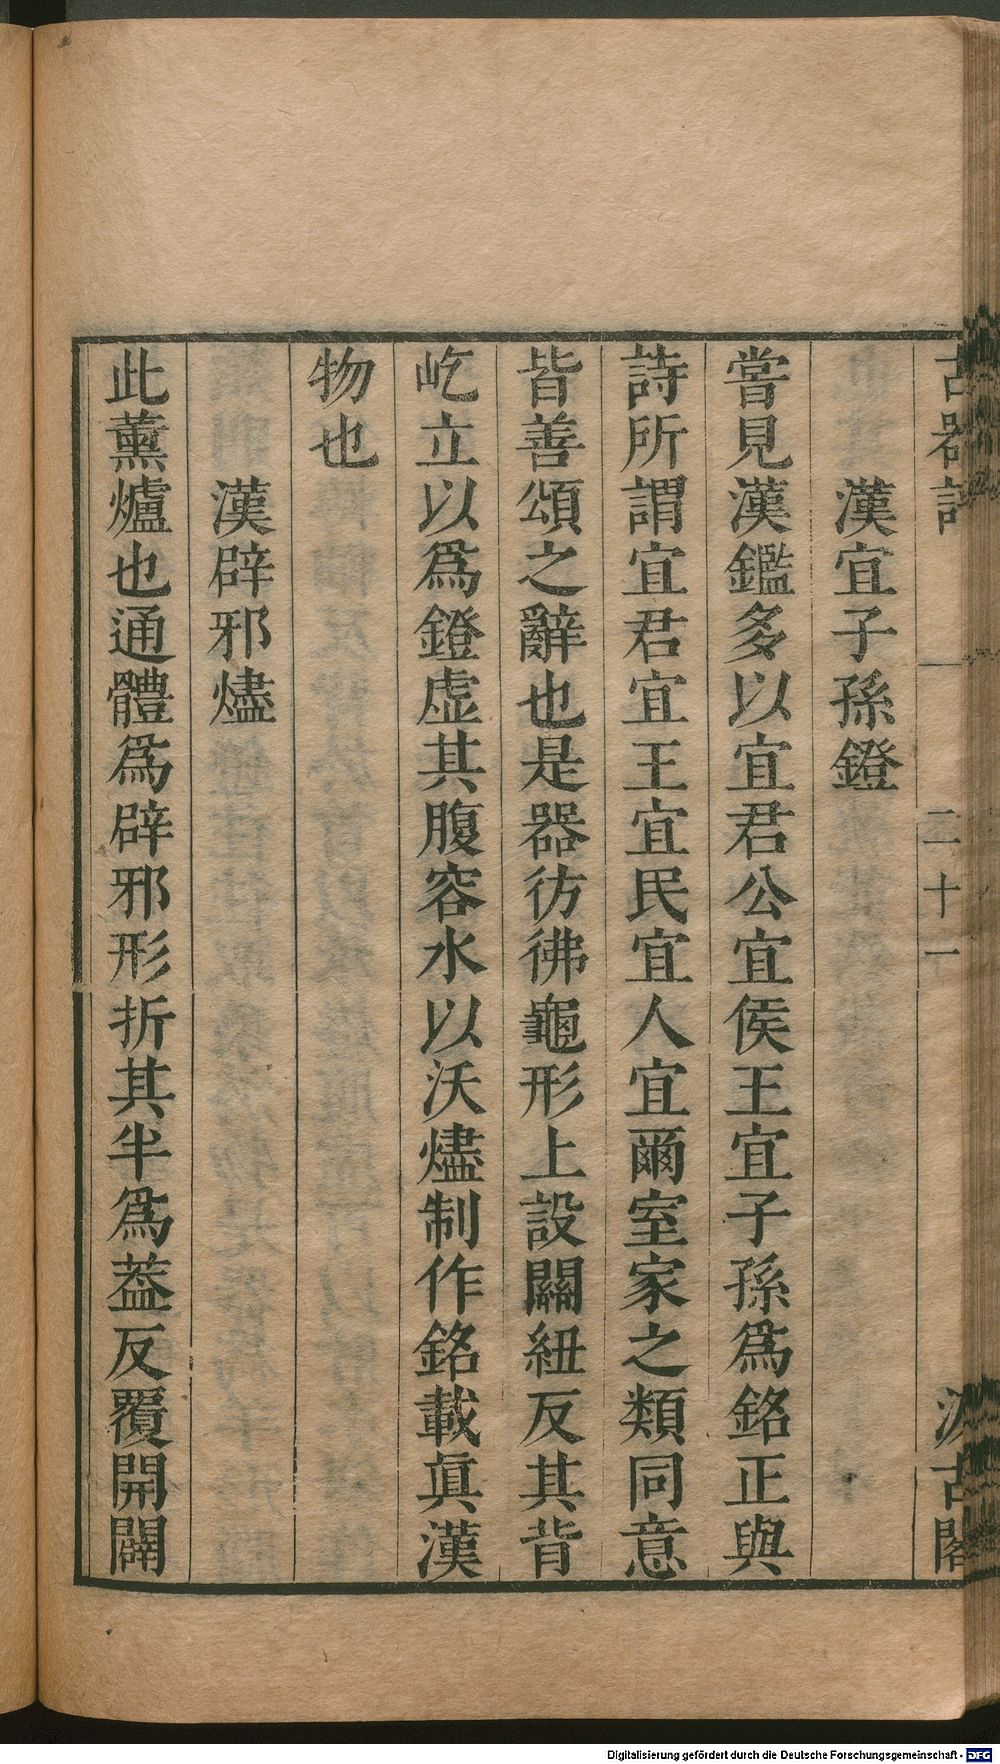 古器記 二十一 汲古閣
漢宜子孫鐙
嘗見漢鑑多以宜君公宜侯王宜子孫爲銘正與
詩所謂宜君宜王宜民宜人宜爾室家之類同意
皆善頌之辭也是器彷彿龜形上設關紐反其背
屹立以爲鐙虛其腹容水以沃燼制作銘載眞漢
物也
漢辟邪燼
此薰爐也通體爲辟邪形折其半爲葢反覆開闢
Digitalisierung gefördert durch die Deutsche Forschungsgemeinschaft - DFG